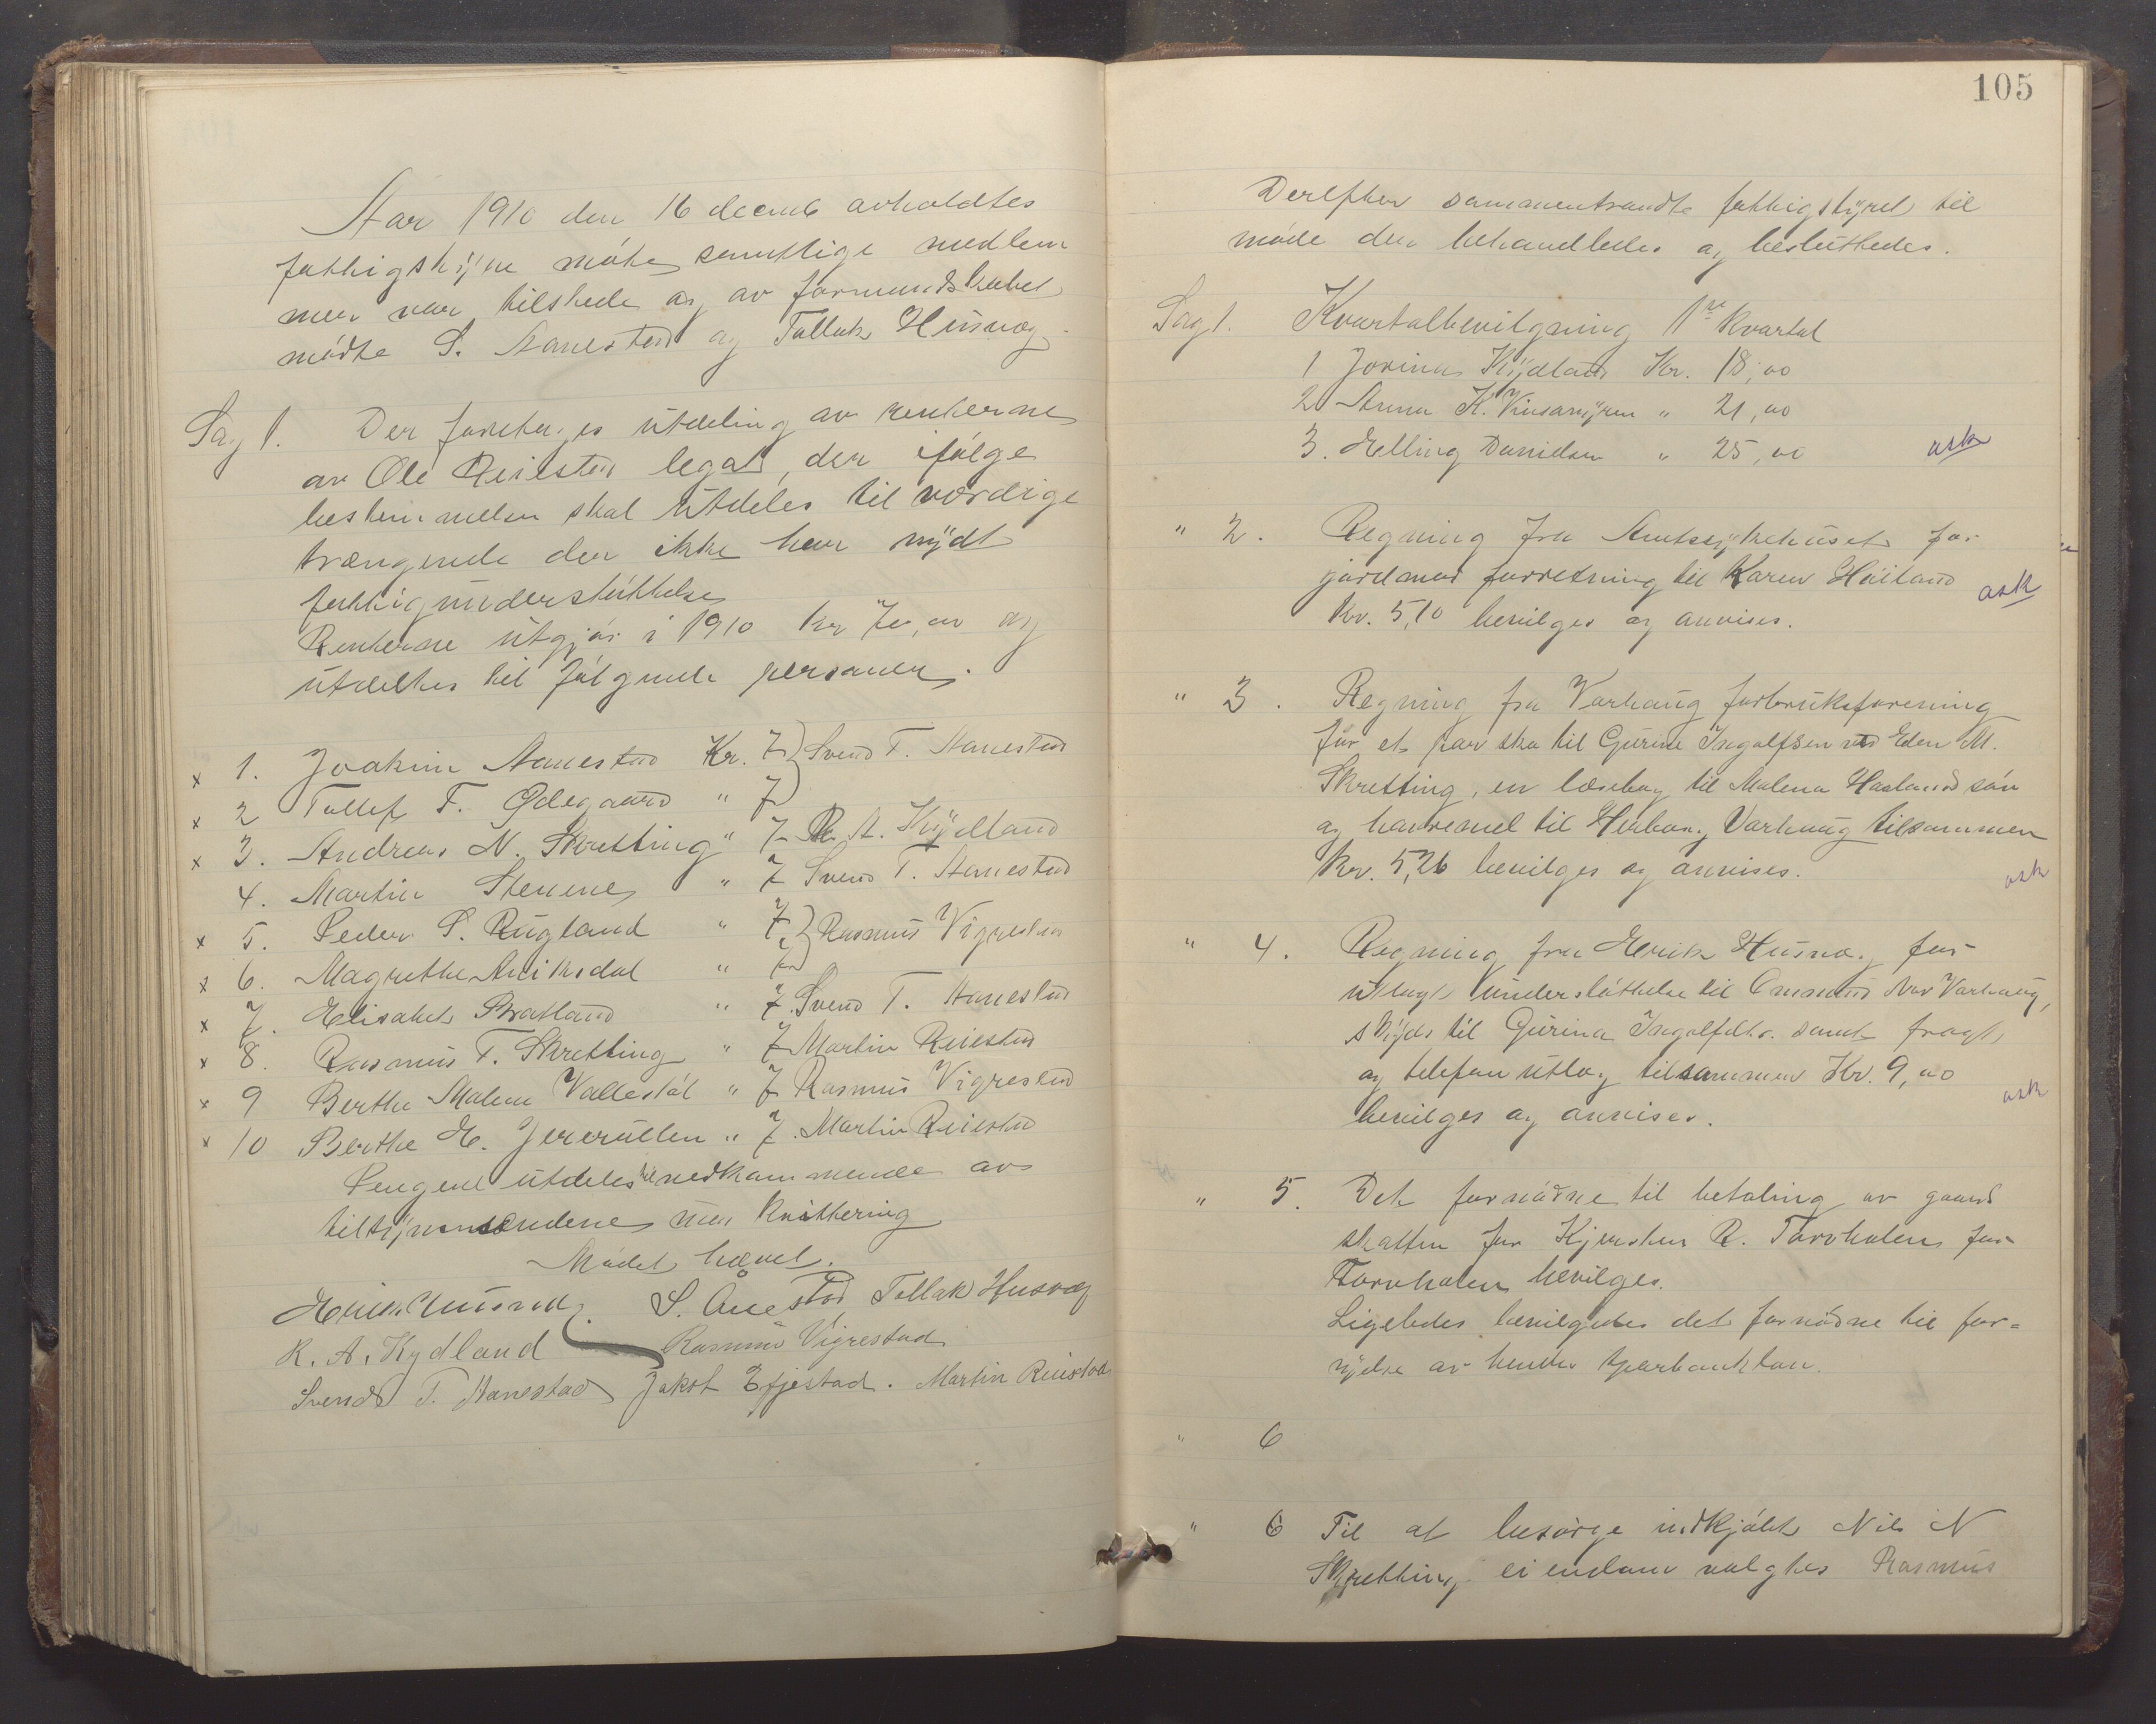 Aar 1910 den 16 decemb avholdtes
fattigstyre møte samtlige medlem
mer var tilstede og av formundskabet
mødte S. Aanestad og Tollak Husvæg.
Sag 1. Der foretages utdeling av renterne
av Ole Reiestad legat, der ifølge
bestemmelsen skal utdeles til værdige
trængende der ikke har nydt
fattigunderstøttelse
Renterne utgjør i 1910 kr 70,00 og
utdeltes til følgende personer.
x 1. Joakim Aanestad Kr. 7 } Svend T. Aanestad
x 2 Tollef T. Ødegaard " 7
x 3. Andreas N. Skretting " 7 R. A. Kydland
4. Martin Stenene " 7 Svend T. Aanestad
x 5. Peder S. Rugland " 7 } Rasmus Vigrestad
x 6. Magrethe Aniksdal " 7
x 7. Elisabet Bratland " 7. Svend T. Aanestad
x 8. Rasmus T. Skretting " 7 Martin Reiestad
x 9 Berthe Malene Vallestøl " 7 Rasmus Vigrestad
x 10 Berthe E. " 7. Martin Reiestad
Pengene utdeles til vedkommende av
tilsynsmændene mot kvittering
Mødet hævet.
Erik Husvæg. S. Anestad Tollak Husvæg
R. A. Kydland Rasmus Vigrestad
Svend T. Aanestad Jakob Efjestad. Martin Reiestad
105
Derefter sammentraadte fattigstyret til
møde der behandledes og besluttedes.
Sag 1. Kvartalbevilgning 1re kvartal
1 Jorina Kydland Kr. 18,00
2 Anna K. Vinsamyren " 21,00
3. Elling Danielsen " 25,00 ask
" 2. Regning fra Amtssykehuset for
jordmor forretning til Karen Høiland
Kr. 5,10 bevilges og anvises. ask
" 3. Regning fra Varhaug forbruksforening
for et par sko til Gurine Ingolfsen ved Eden M.
Skretting, en læsebog til Malena Haaland søn
og havremel til Herborg Varhaug tilsammen
Kr. 5,26 bevilges og anvises. ask
" 4. Regning fra Erik Husvæg for
utlagt understøttelse til Omund Nor Varhaug,
skyds til Gurina Ingolfdtr. samt fragt
og telefon utlæg tilsammen Kr. 9,00
bevilges og anvises. ask
" 5. Det fornødne til betaling av gaards
skatten for Kjersten R. Torvholen for
Torvholen bevilges.
Ligeledes bevilgedes det fornødne til for=
nyelse av hendes sparbanklaan.
" 6
" 6 Til at besørge indkjøbt Nils N
Skretting eiendom valgtes Rasmus